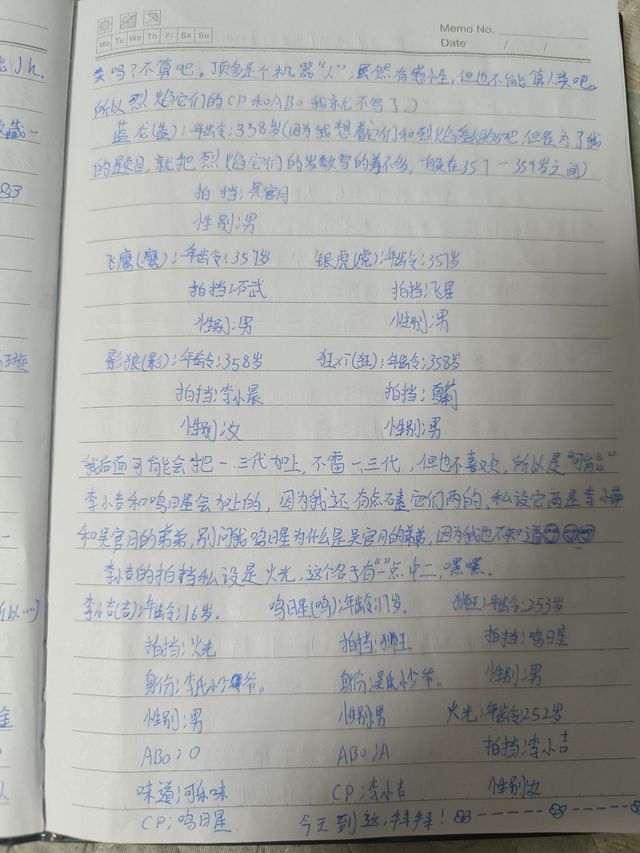 Memo No.
Mo Tu We Th Fr Sa Su
Date / /
类吗?不算吧。顶多是个机器“人”,虽然有感性,但也不能算人类吧。
所以烈焰它们的CP和ABO我就不写了。)
蓝龙(蓝):年龄:358岁(因为我想着它们和烈焰差很多吧,但是为了我
的题目,就把烈焰它们的岁数写的差不多,一般在357一359岁之间)
拍挡:吴宫月
性别:男
飞鹰(鹰):年龄:357岁 银虎(虎):年龄:357岁
拍挡:石武 拍挡:飞星
性别:男 性别:男
影狼(影):年龄:358岁 狂(狂):年龄:358岁
拍挡:李小晨 拍挡:夏
性别:女 性别:男
我后面可能会把一.三代加上,不雷一.三代,但也不喜欢,所以是“可能”
李小吉和鸣日星会加上的,因为我还有点磕它们两的,私设它两是李小
和吴宫月的弟弟,别问我鸣日星为什么是吴宫月的弟弟,因为我也不知道
李小吉的拍挡私设是火光,这个名字有“一”点中二,嘿嘿。
李小吉(吉):年龄:16岁. 鸣日星(鸣):年龄:17岁. 狮王:年龄:253岁
拍挡:火光 拍挡:狮王 拍挡:鸣日星
身份:李氏小少爷。 身份:吴氏小少爷。 性别:男
性别:男 性别:男 火光:年龄:252岁
ABO:O ABO:A 拍挡:李小吉
味道:可乐味 CP:李小吉 性别:女
CP:鸣日星 今天到这,拜拜!